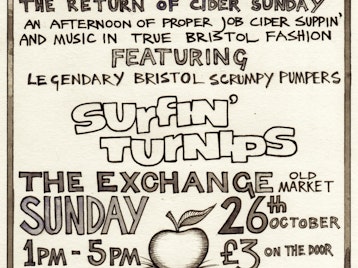 THE RETURN OF CIDER SUNDAY
AN AFTERNOON OF PROPER JOB CIDER SUPPIN'
AND MUSIC IN TRUE BRISTOL FASHION
FEATURING
LEGENDARY BRISTOL SCRUMPY PUMPERS
SURFIN'
TURNIPS
THE EXCHANGE OLD MARKET
SUNDAY 26th OCTOBER
1PM - 5PM £3 ON THE DOOR